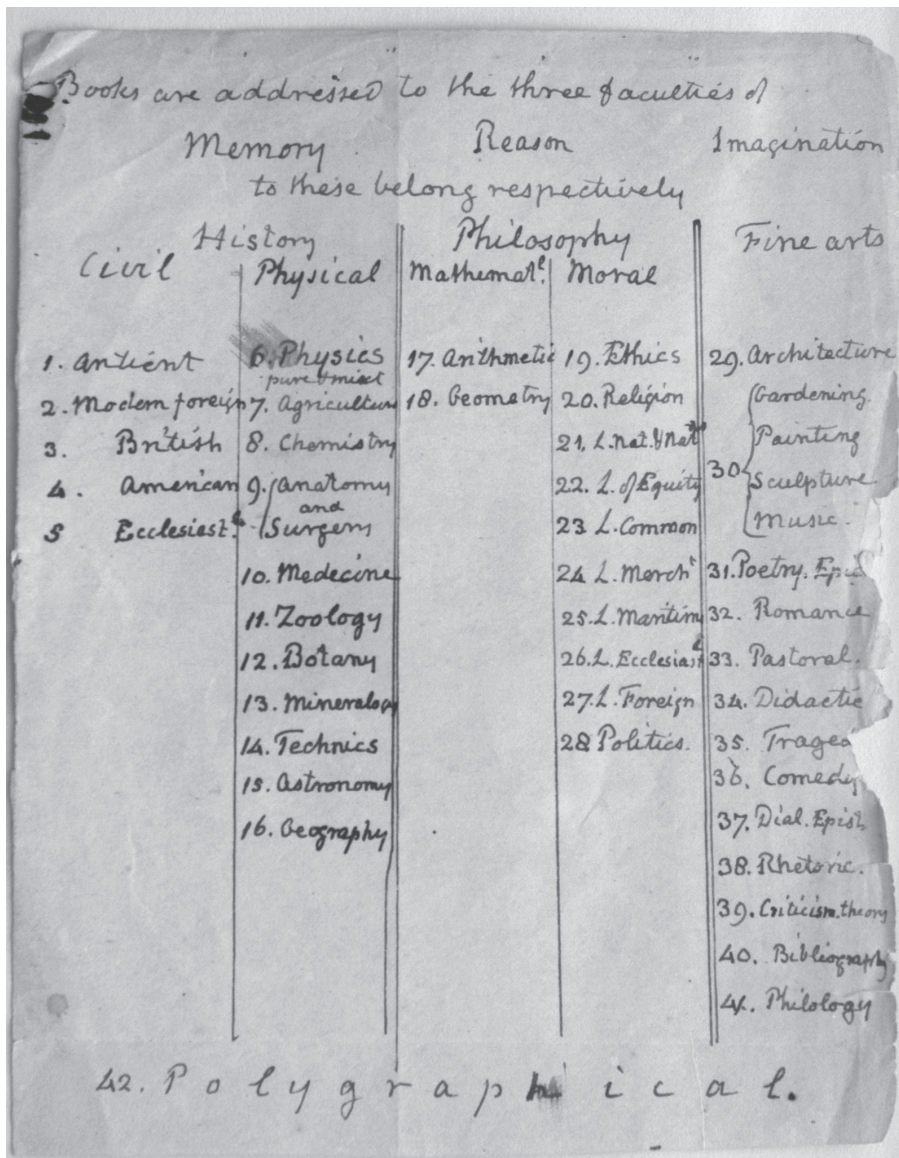 Books are addressed to the three faculties of
Memory Reason Imagination
to these belong respectively
History Philosophy Fine arts
Civil Physical Mathematl. Moral
1. Antient
2. Modern foreign
3. British
4. American
5 Ecclesiastl.
6. Physics
pure & mixt
7. Agriculture
8. Chemistry
9. Anatomy
and
Surgery
10. Medecine
11. Zoology
12. Botany
13. Mineralogy
14. Technics
15. Astronomy
16. Geography
17. Arithmetic
18. Geometry
19. Ethics
20. Religion
21. L. Nat. & Nats
22. L. of Equity
23 L. Common
24 L. Mercht
25. L. Maritim
26. L. Ecclesiastl
27. L. Foreign
28 Politics.
29. Architecture
30
Gardening.
Painting
Sculpture
Music.
31. Poetry. Epic
32. Romance
33. Pastoral.
34. Didactic
35. Traged
36. Comedy
37. Dial. Epist
38. Rhetoric.
39. Criticism. theory
40. Bibliography
41. Philology
42. Polygraphical.